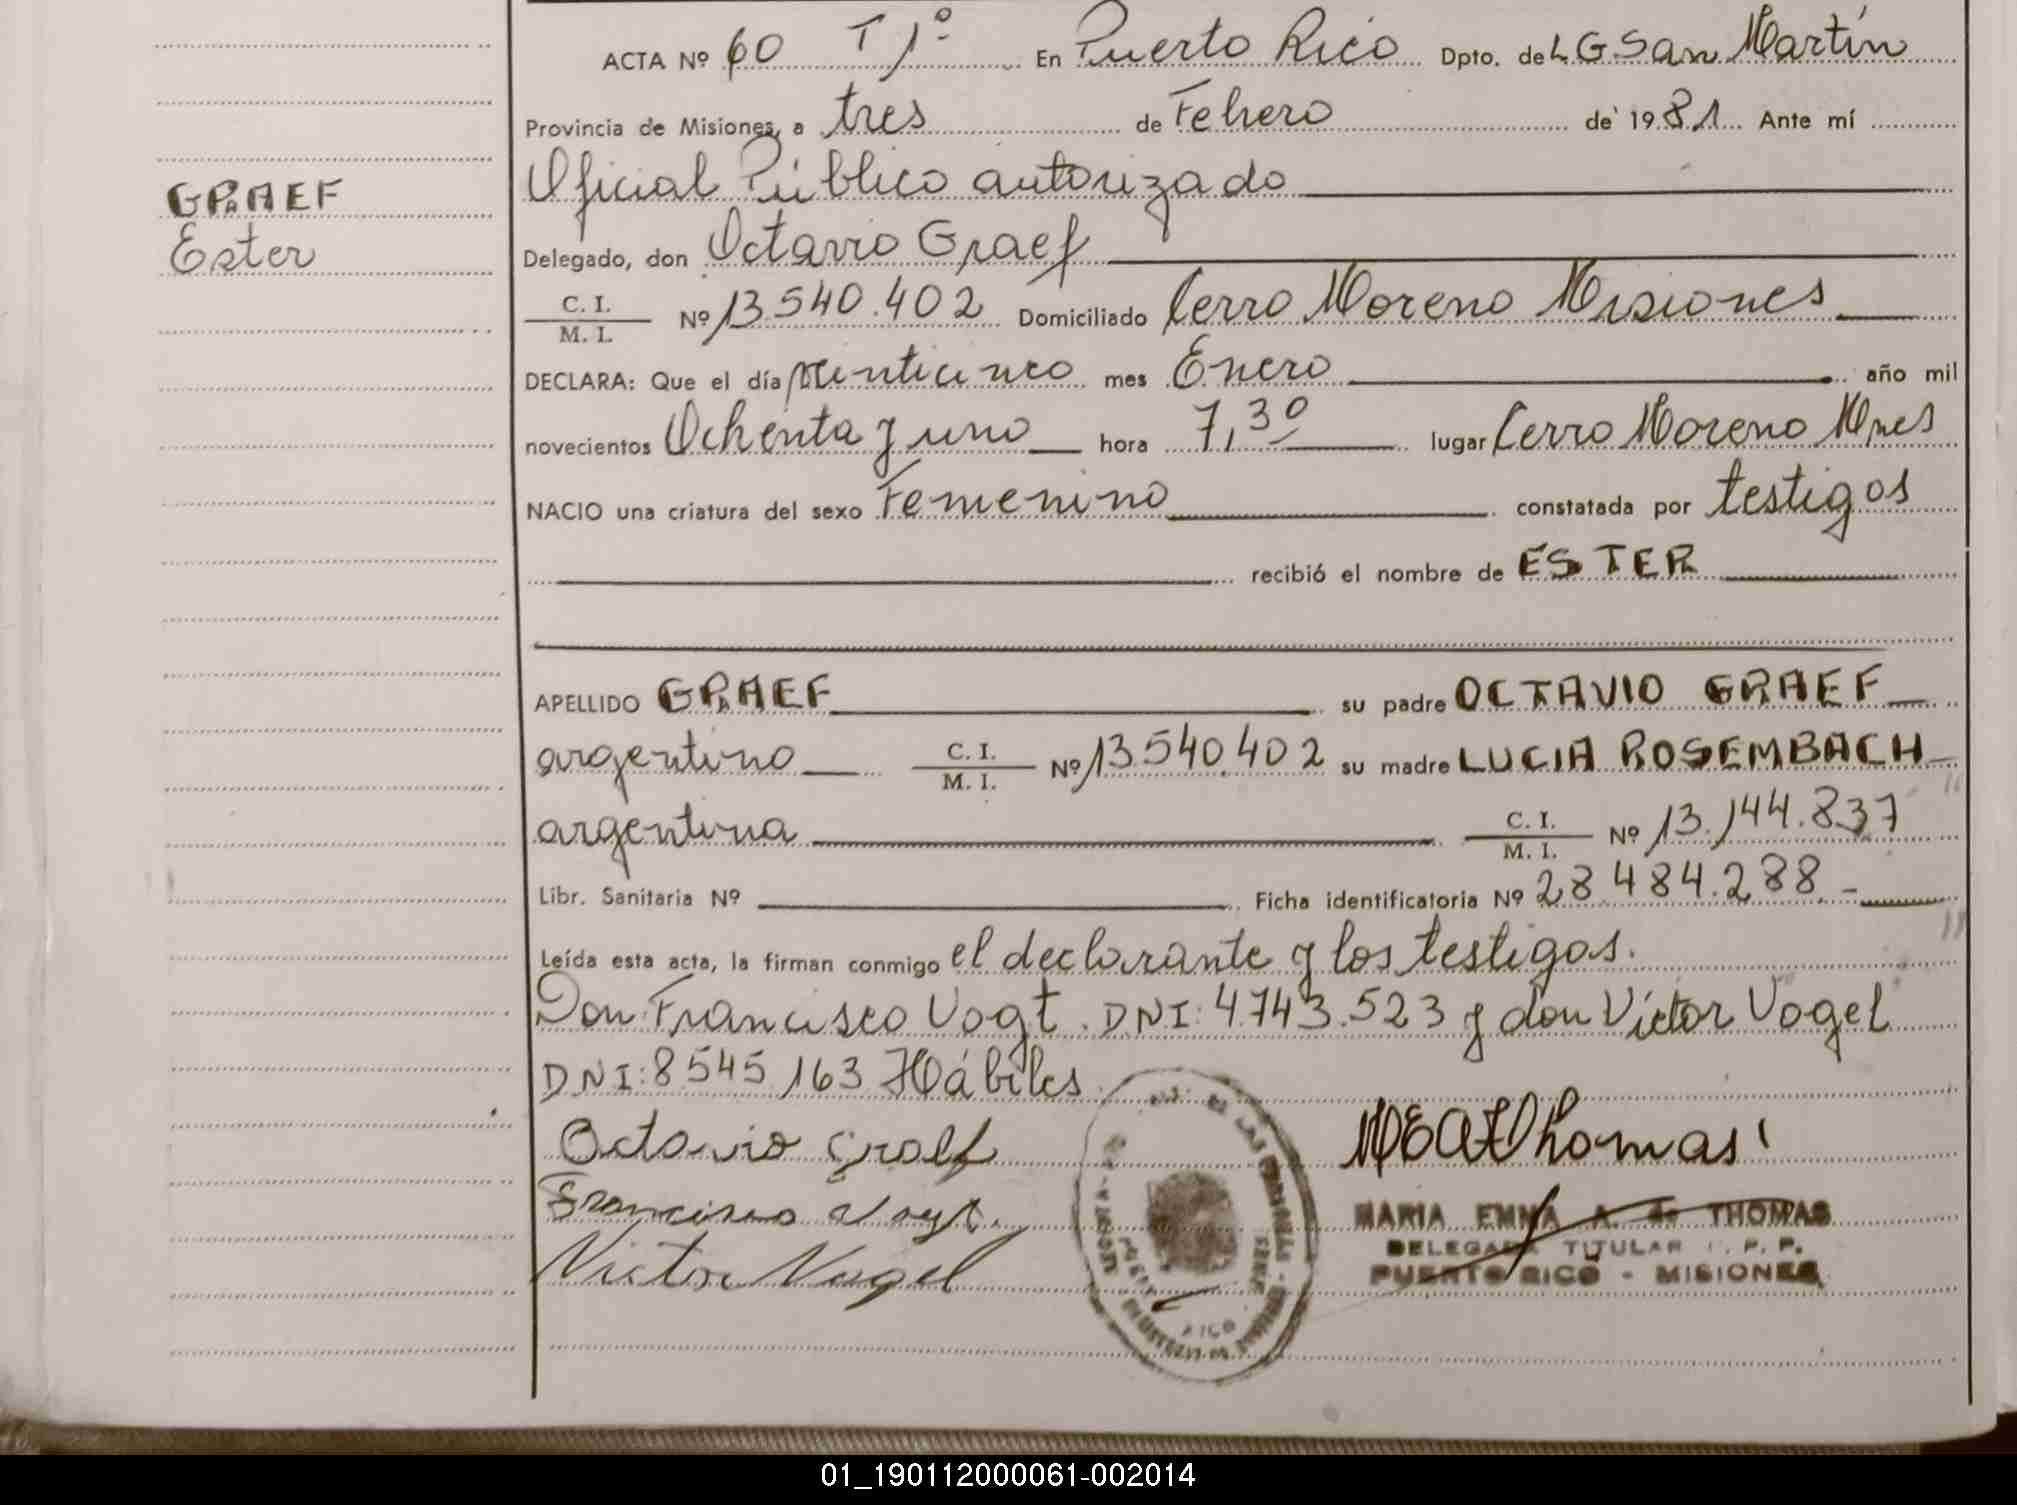 ACTA Nº 60 T 1º En Puerto Rico Dpto. de L G San Martín
Provincia de Misiones, a tres de Febrero de 1981 Ante mí
GRAEF
Oficial Público autorizado
Ester
Delegado, don Octavio Graef
C. I.
M. I.
Nº 13.540.402 Domiciliado Cerro Moreno Misiones
DECLARA: Que el día veinticinco mes Enero año mil
novecientos Ochenta y uno hora 7,30 lugar Cerro Moreno Mnes
NACIO una criatura del sexo Femenino constatada por testigos
recibió el nombre de ESTER
APELLIDO GRAEF su padre OCTAVIO GRAEF
argentino C. I. M. I. Nº 13.540.402 su madre LUCIA ROSEMBACH
argentina C. I. M. I. Nº 13.144.837
Libr. Sanitaria Nº Ficha identificatoria Nº 28.484.288.-
Leída esta acta, la firman conmigo el declarante y los testigos.
Don Francisco Vogt. DNI: 4.743.523 y don Víctor Vogel
DNI: 8545163 Hábiles
Octavio Graef
MEAThomas
Francisco Vogt.
MARIA EMMA A. de THOMAS
DELEGADA TITULAR R. P. P.
PUERTO RICO - MISIONES
Victor Vogel
RICO
01_190112000061-002014